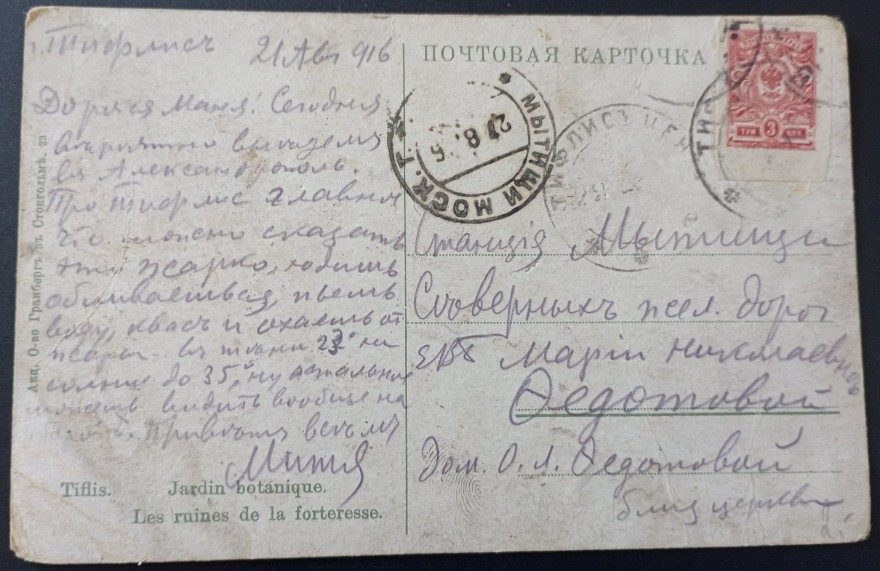 г. Тифлисъ 21 Авг 916
Дорогая Маня! Сегодня
выѣздемъ
въ Александрополь.
Про Тифлис главное
что можно сказать
это жарко, ходишь
обливаешься, пьешь
воду, квасъ и охаешь от
жары. въ тѣни 23° на
солнце до 35°, ну остальное
можешь видѣть вообще на
Привѣтъ всѣмъ
Митя
Tiflis. Jardin botanique.
Les ruines de la forteresse.
Акц. О-во Гранбергъ въ Стокгольмѣ. 23
ПОЧТОВАЯ КАРТОЧКА
ТРИ 3 КОП
МЫТИЩИ МОСК. Г.
ТИФЛИСЪ ЦЕН
ТИФ
Станція Мытищи
Сѣверныхъ жел. дорог
ЕВБ Маріи Николаевной
Федотовой
Дом. О. Л. Федотовой
близ церкви